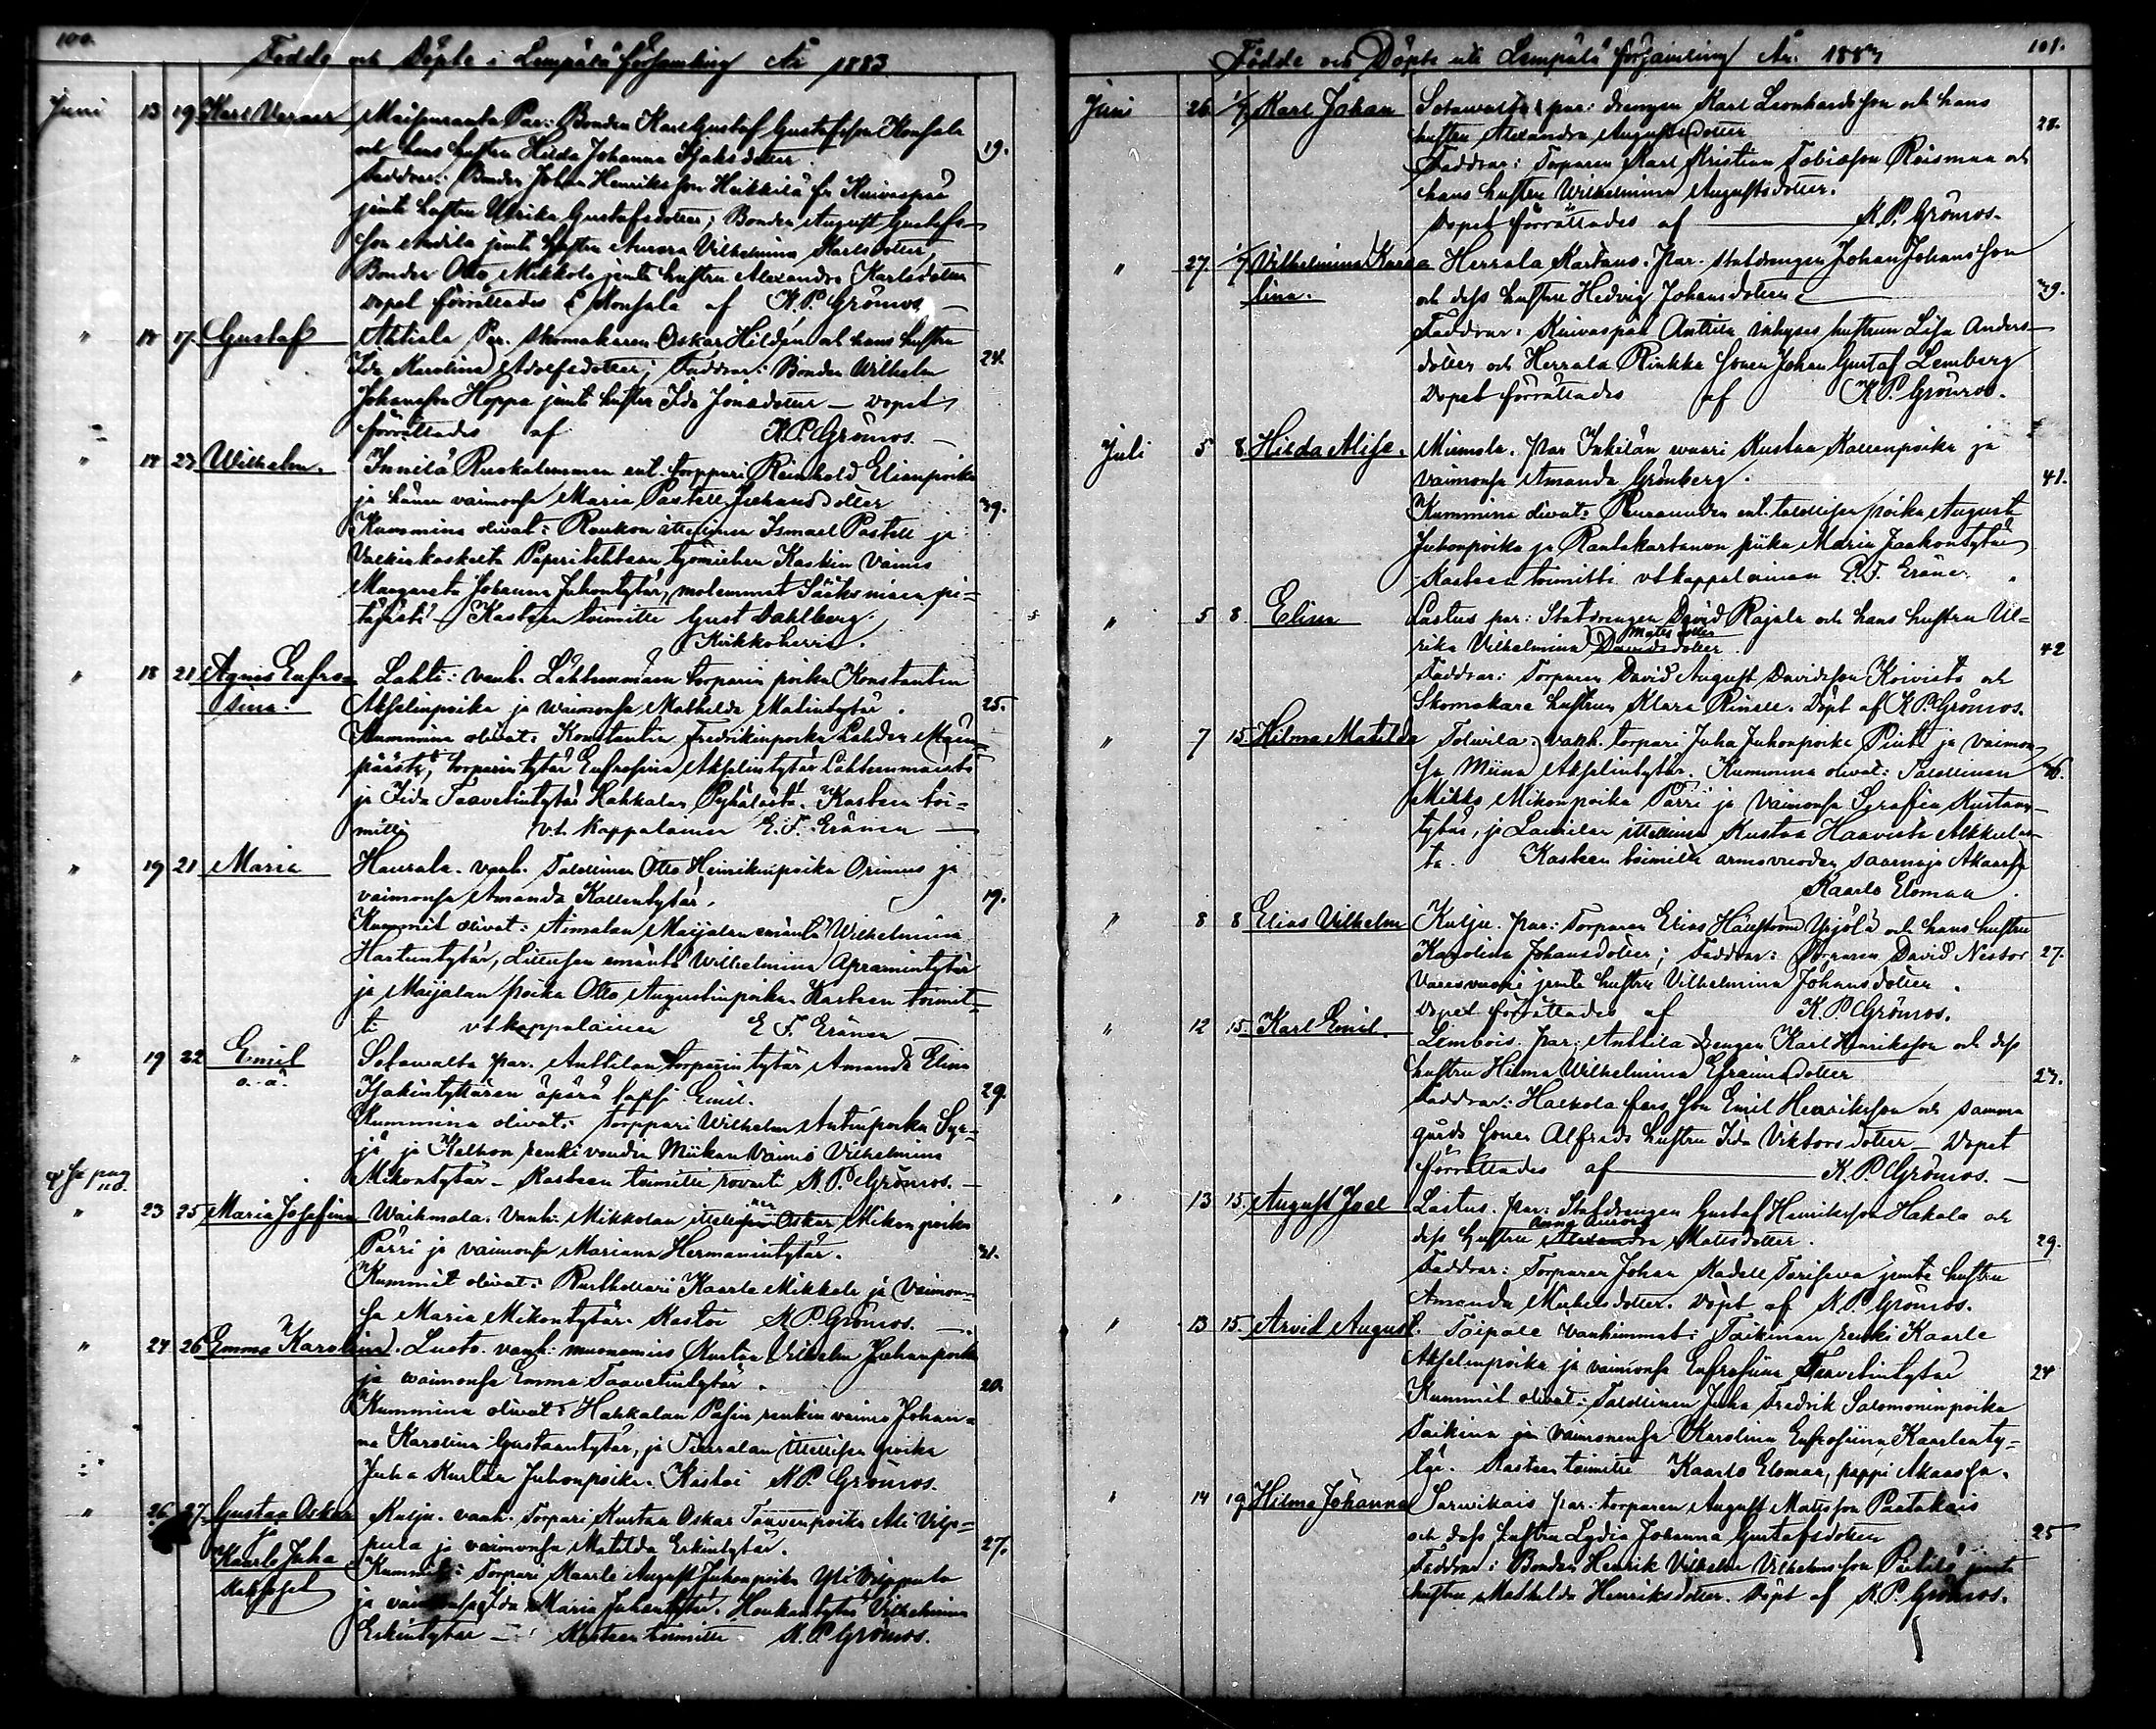 100.
Födde och Döpte i Lempälä församling År 1883.
Juni 13 19 Karl Verner Maisenranta Par: Bonden Karl Gustaf Gustafsson Konsala
och hans hustru Hilda Johanna Isaksdotter. 19.
Faddrar: Bonden Johan Henriksson Heikkilä fr Kuivaspää
jemte hustru Ulrika Gustafsdotter; Bonden August Gustafs-
son Andila jemte hustru Aurora Vilhelmina Karlsdotter,
Bonden Otto Mikkola jemte hustru Alexandra Karlsdotter
Dopet förrättades i Konsala af K.P. Grönros
" 14 17. Gustaf Ahtiala Par. Skomakaren Oskar Hildén och hans hustru
Ida Karolina Adolfsdotter; Faddrar: Bonden Wilhelm 24.
Johansson Hoppa jemte hustru Ida Jonasdotter — Dopet
förrättades af K.P. Grönros.
" 14 23 Wilhelm. Innilä Ruskalammen ent. torppari Reinhold Elianpoika
ja hänen vaimonsa Maria Pastell Juhansdotter 39.
Kummina olivat: Roukon itsellinen Ismael Pastell ja
Valkiakoskelta Paperitehtaan työmiehen Kaskin vaimo
Margareta Johanna Juhontytär, molemmat Sääksmäen pi-
täjästä. — Kasteen toimitti Gust Dahlberg.
Kirkkoherra.
" 18 21 Agnes Eufro- Lahti: vanh. Lahtenmäen torparin poika Konstantin
sina. Akselinpoika ja vaimonsa Mathilda Matintytär. 25.
Kummina olivat: Konstantin Fredrikinpoika Lahden Mäen-
päästä, torparin tytär Eufrosina Akselintytär Lahtenmäestä
ja Fida Taavetintytär Hahkalan Pyhälöstä. Kasteen toi-
mitti v.t. Kappalainen E.F. Eränen
" 19 21 Maria Haurala. vanh. Talollinen Otto Heinrikinpoika Orinus ja
vaimonsa Amanda Kallentytär. 19.
Kummit olivat: Aimalan Maijalan emäntä Wilhelmina
Hartuntytär, Lillusen emäntä Wilhelmina Apramintytär
ja Maijalan poika Otto Augustinpoika. Kasteen toimit-
ti vt kappalainen E F. Eränen
" 19 22 Emil Sotavalta par. Anttilan torparin tytär Amanda Elina
o. ä. Isakintyttären äpärä lapsi Emil. 29.
Kummina olivat: torppari Wilhelm Antinpoika Syr-
jä ja Kelhon renki voudin Miikan vaimo Vilhelmina
Mikontytär — Kasteen toimitti rovasti K.P. Grönros.
" 23 25 Maria Josefina Waihmala. Vanh: Mikkolan itsellinen Oskar Mikon poika
Pärri ja vaimonsa Mariana Hermanintytär. 21.
Kummit olivat: Rusthollari Kaarle Mikkola ja vaimon-
sa Maria Mikontytär. Kastoi K.P. Grönros.
" 24 26 Emma Karolina. Kuoto. vanh: muonamies Kustaa Vilhelm Juhanpoika
ja vaimonsa Emma Taavetintytär. 20.
Kummina olivat: Hahkalan Pasin renkin vaimo Johan-
na Karolina Gustaantytär, ja Tiuralan itsellisen poika
Juha Kustaa Juhonpoika. Kastoi K.P. Grönros.
" 26. 27. Gustaa Oskar Kulju. vanh. Torpari Kustaa Oskar Taavenpoika Ali Vilp-
ja pula ja vaimonsa Matilda Erkintytär. 27.
Kaarle Juha Kummit: Torpari Kaarle August Juhonpoika Yli Vilppula
kaksoset ja vaimonsa Ida Maria Juhontytär. Houkantytär Vilhelmina
Erkintytär — Kasteen toimitti K.P. Grönros.
Födde och Döpte uti Lempälä församling År. 1883 101.
Juni 26 1/7 Karl Johan Sotawalta par: drengen Karl Leonhardsson och hans
hustru Alexandra Augustsdotter 28.
Faddrar: Torparen Karl Kristian Tobiasson Roismaa och
hans hustru Wilhelmina Augustsdotter.
Dopet förrättades af K.P. Grönros.
" 27. 1/7 Vilhelmina Karo- Herrala Kartano. par. Statdrengen Johan Johansson
lina. och dess hustru Hedvig Johansdotter 39.
Faddrar: Kuivaspää Anttila inhyses hustrun Lisa Anders-
dotter och Herrala Rinkka sonen Johan Gustaf Lemberg
Dopet förrättades af K.P. Grönros.
Juli 5 8 Hilda Alise. Miemola. par Inkilän vaari Kustaa Kallenpoika ja
vaimonsa Amanda Grönberg. 41.
Kummina olivat: ent. talollisen poika August
Juhonpoika ja Rantakartanon piika Maria Jaakontytär
Kasteen toimitti vt kappalainen E.F. Eränen
" 5 8 Elina Lastus par: Statdrengen David Rajala och hans hustru Ul-
rika Vilhelmina Davidsdotter Matsdotter. 42
Faddrar: Torparen David August Davidsson Koivisto och
Skomakare hustrun Klara Rinell. Döpt af K P. Grönros.
" 7 15 Hilma Matilda Tolvila. Vanh. torpari Juha Juhonpoika Pintti ja vaimon-
sa Miina Akselintytär. Kummina olivat: Talollinen 46.
Mikko Mikonpoika Pärri ja vaimonsa Serafia Kustaan-
tytär, ja Laurilan itsellinen Kustaa Haavisto Alkkulas-
ta. Kasteen toimitti armovuoden saarnaja Akaassa
Kaarlo Elomaa.
" 8 8 Elias Vilhelm Kulju. par: Torparen Elias Häggström Yrjölä och hans hustru
Karolina Johansdotter; Faddrar: Torparen David Nestor 27.
Varesvuori jemte hustru Vilhelmina Johansdotter.
Dopet förrättades af K.P. Grönros.
" 12 15. Karl Emil. Lembois. par: Anttila drengen Karl Henriksson och dess
hustru Hilma Wilhelmina Efraimsdotter 27.
Faddrar: Halkola fars son Emil Henriksson och samma
gårds sonen Alfreds hustru Ida Viktorsdotter — Dopet
förrättades af K.P. Grönros.
" 13 15. August Joel Lastus. par: Statdrengen Gustaf Henriksson Hakala och
dess hustru Alexandra Anna Aurora Mattsdotter. 29.
Faddrar: Torparen Johan Kadell Toriseva jemte hustru
Amanda Mickelsdotter. Döpt af K.P. Grönros.
" 13 15. Arvid August. Taipale Vanhimmat: Taikinan renki Kaarle
Akselinpoika ja vaimonsa Eufrosina Taavetintytär 24
Kummit olivat: Talollinen Juha Fredrik Salomoninpoika
Taikina ja vaimonensa Karolina Eufrosiina Kaarlenty-
tär. Kasteen toimitti Kaarlo Elomaa, pappi Akaassa.
" 14 19 Hilma Johanna Sarvikais par: torparen August Matsson Paatakais
och dess hustru Lydia Johanna Gustafsdotter 25
Faddrar: Bonden Henrik Vilhelm Vilhelmsson Pietilä jemte
hustru Mathilda Henriksdotter. Döpt af K.P. Grönros.